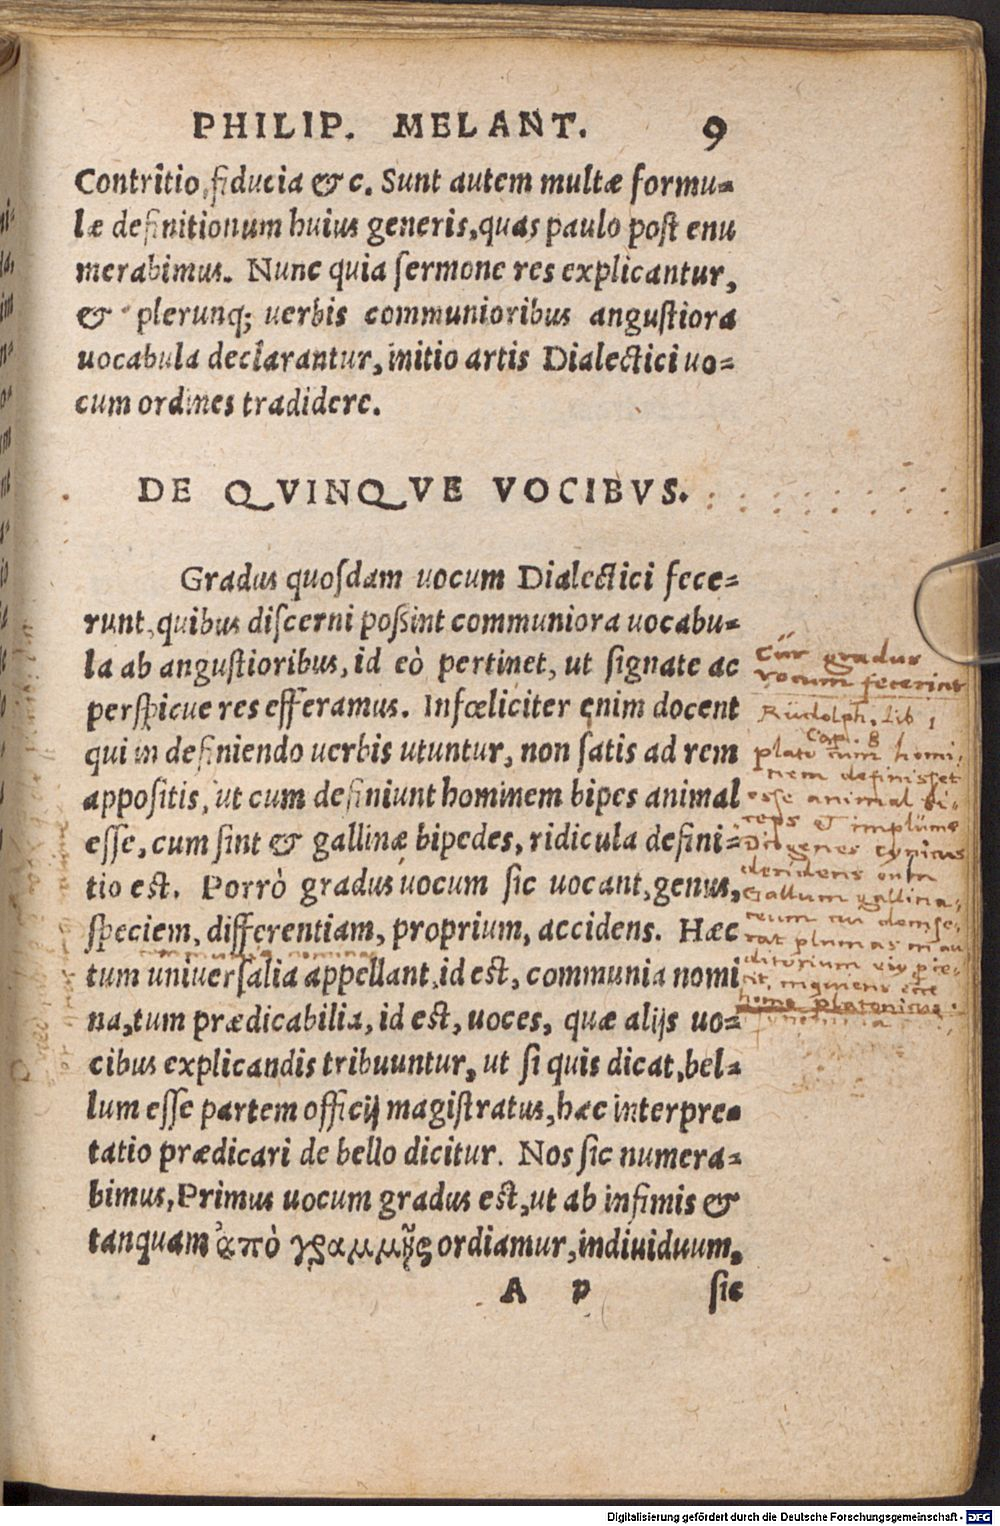 PHILIP. MELANT. 9
Contritio, fiducia & c. Sunt autem multæ formu-
læ definitionum huius generis, quas paulo post enu
merabimus. Nunc quia sermone res explicantur,
& plerunq; uerbis communioribus angustiora
uocabula declarantur, initio artis Dialectici uo-
cum ordines tradidere.
DE QVINQVE VOCIBVS.
Gradus quosdam uocum Dialectici fece-
runt, quibus discerni poßint communiora uocabu-
la ab angustioribus, id eò pertinet, ut signate ac
perspicue res efferamus. Infœliciter enim docent
qui in definiendo uerbis utuntur, non satis ad rem
appositis, ut cum definiunt hominem bipes animal
esse, cum sint & gallinæ bipedes, ridicula defini-
tio est. Porrò gradus uocum sic uocant, genus,
speciem, differentiam, proprium, accidens. Hæc
tum uniuersalia appellant, id est, communia nomi
na, tum prædicabilia, id est, uoces, quæ alijs uo-
cibus explicandis tribuuntur, ut si quis dicat, bel-
lum esse partem officij magistratus, hæc interpre-
tatio prædicari de bello dicitur. Nos sic numera-
bimus, Primus uocum gradus est, ut ab infimis &
tanquam ἀπὸ γραμμῆς ordiamur, indiuiduum,
A p sic
Cür gradus
vocum fecerint
Rüdolph. Lib 1
Cap. 8
plato cum homi-
nem definisset
esse animal bi-
pes et implüme
Diogenes cynicus
deridens eum
Gallum gallina-
ceum
plumas in au
ditorium
ecce
homo platonicus.